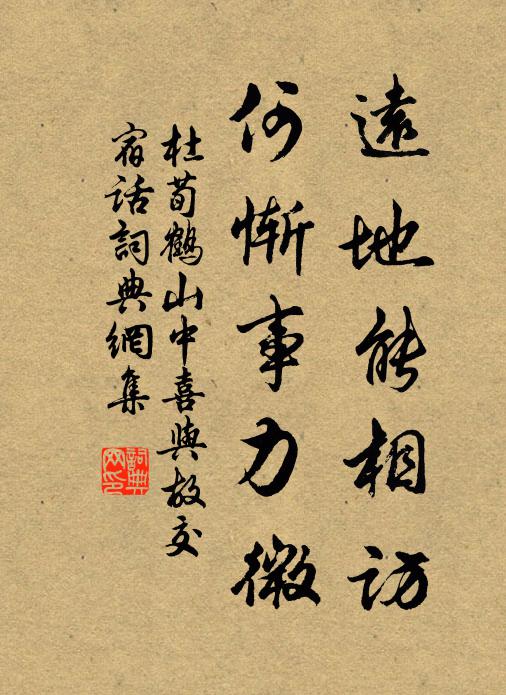 遠地能相訪
何慚事力微
杜荀鶴山中喜與故交
宿話詞典網集
詞典网印